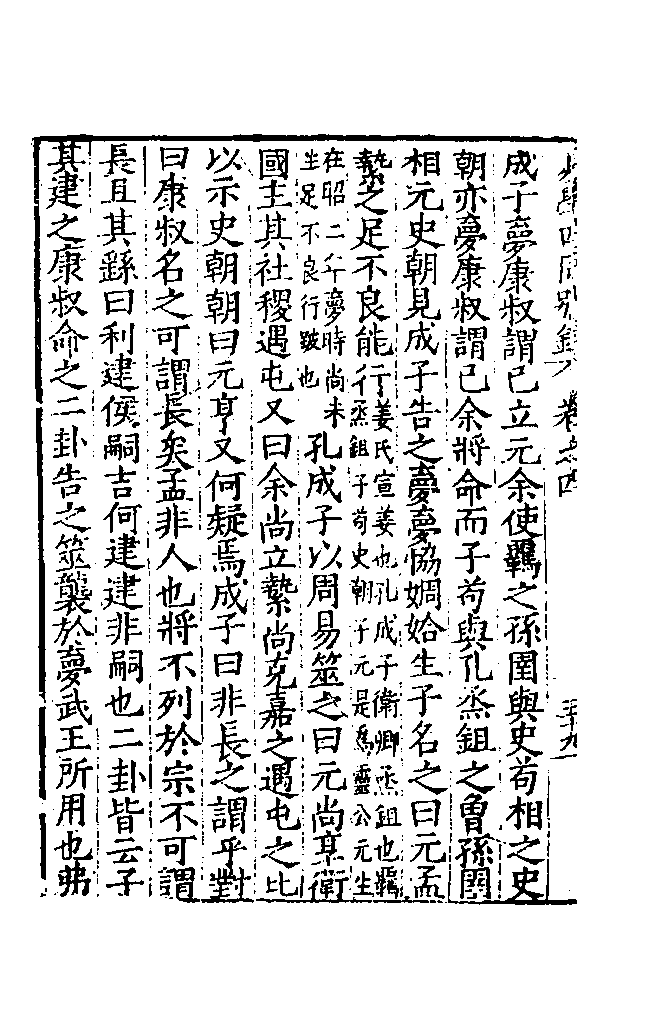 學四同別錄 卷之四 三十九
成子夢康叔謂己立元余使羈之孫圉與史苟相之史
朝亦夢康叔謂己余將命而子苟與孔烝鉏之曾孫圉
相元史朝見成子告之夢夢協婤姶生子名之曰元孟
縶之足不良能行姜氏宣姜也孔成子衛卿烝鉏也羈
烝鉏子苟史朝子元是為靈公元生
在昭二年夢時尚未
生足不良行跛也孔成子以周易筮之曰元尚享衛
國主其社稷遇屯又曰余尚立縶尚克嘉之遇屯之比
以示史朝朝曰元亨又何疑焉成子曰非長之謂乎對
曰康叔名之可謂長矣孟非人也將不列於宗不可謂
長且其繇曰利建侯嗣吉何建建非嗣也二卦皆云子
其建之康叔命之二卦告之筮襲於夢武王所用也弗